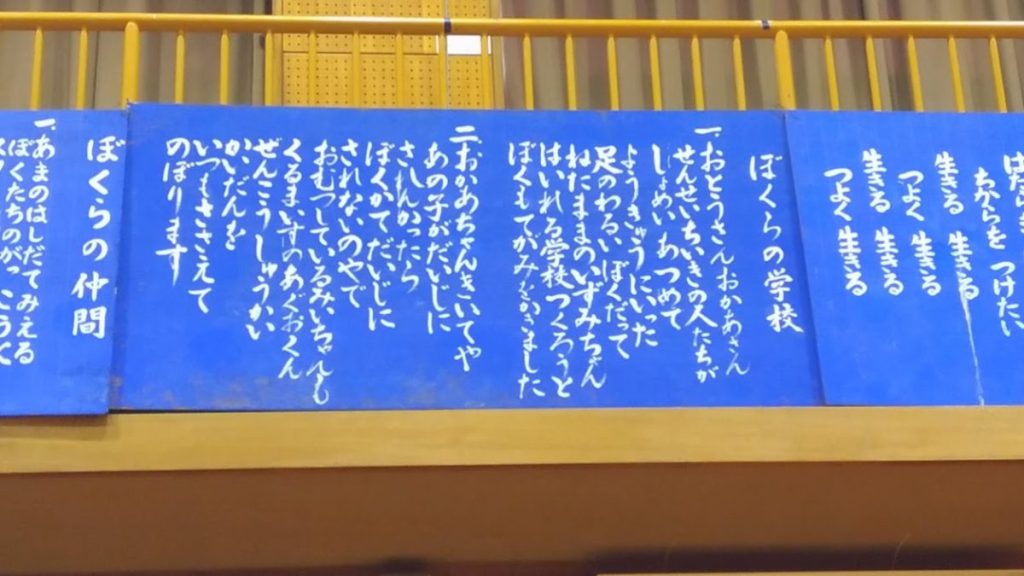 ちからを つけたい
つよく 生きる
生きる 生きる
つよく 生きる
生きる 生きる
つよく 生きる
ぼくらの学校
一、おとうさんおかあさん
せんせいちいきの人たちが
しょめいあつめて
ようきゅうにいった
足のわるいぼくだって
ねたままのいずみちゃん
はいれる学校つくろうと
ぼくもてがみをかきました
二、おかあちゃんきいてや
あの子がだいじに
さしんかったら
ぼくかてだいじに
されないのやで
おむつしているみいちゃんも
くるまいすのあぐおくん
ぜんこうしゅうかい
かいだんを
いつもささえて
のぼります
ぼくらの仲間
一、あまのはしだてみえる
ぼくたちのがっこう